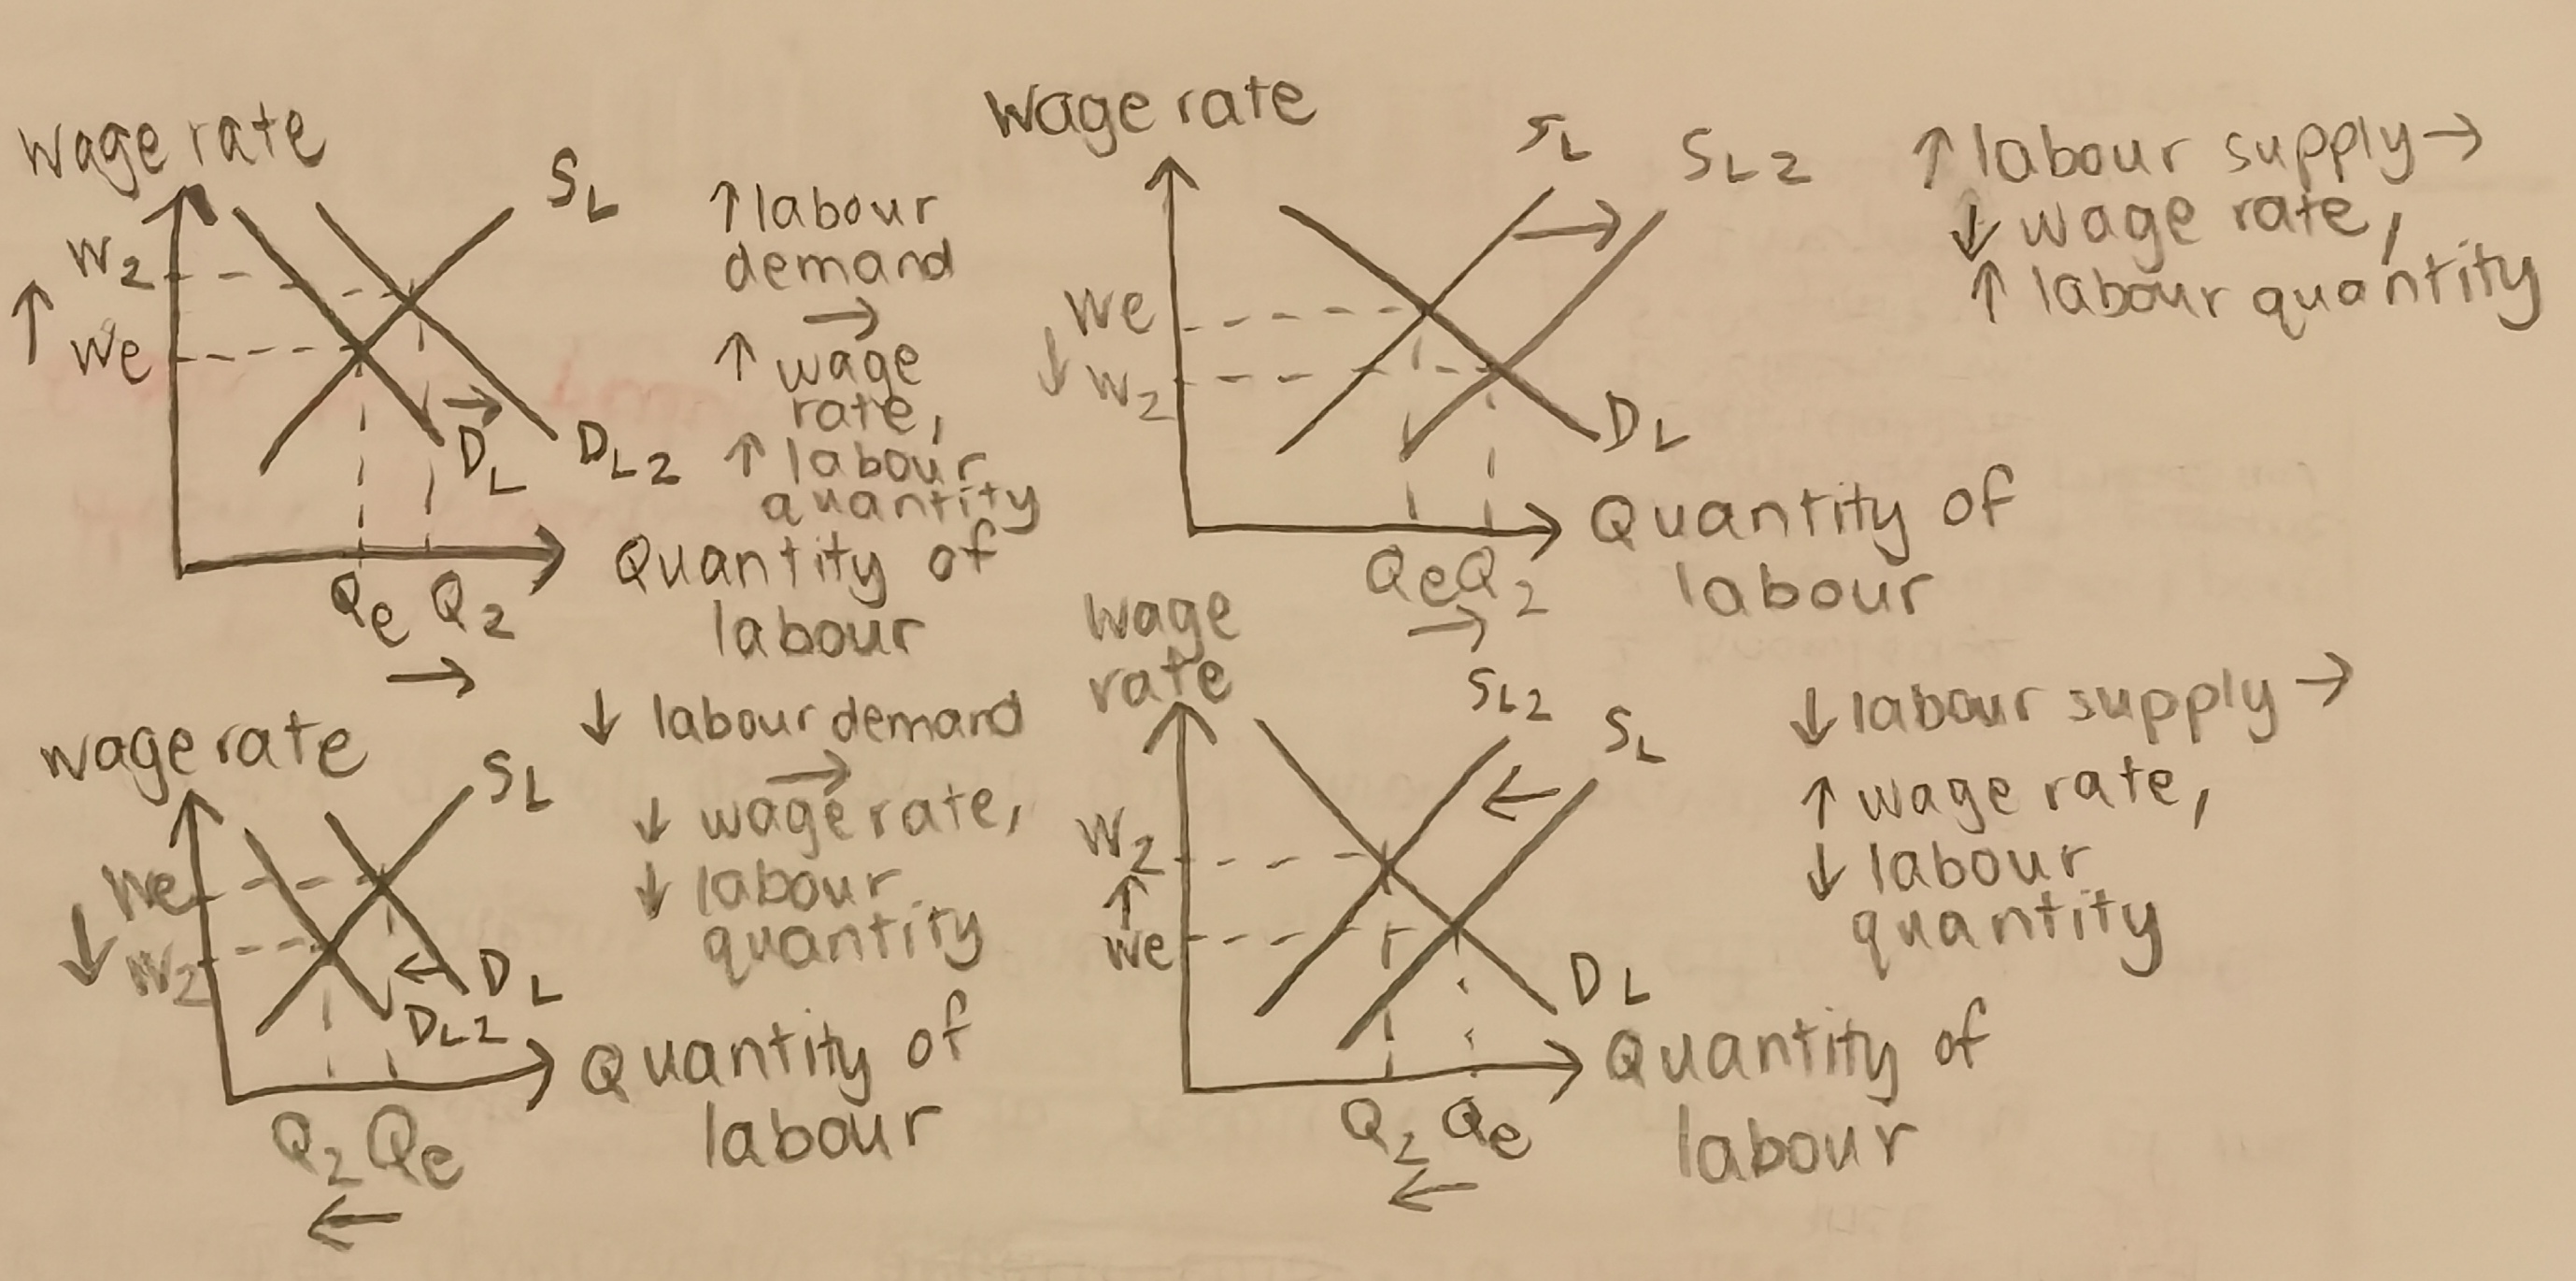 Wage rate
SL
W2
↑
We
DL
→
DL2
Qe Q2
→
Quantity of
labour
↑ labour
demand
→
↑ wage
rate,
↑ labour
quantity
Wage rate
SL
SL2
→
We
↓
W2
DL
QeQ2
→
Quantity of
labour
↑ labour supply →
↓ wage rate,
↑ labour quantity
wage rate
SL
We
↓
W2
←
DL
DL2
Q2 Qe
←
Quantity of
labour
↓ labour demand
→
↓ wage rate,
↓ labour
quantity
Wage
rate
SL2
SL
←
W2
↑
We
DL
Q2 Qe
←
Quantity of
labour
↓ labour supply →
↑ wage rate,
↓ labour
quantity